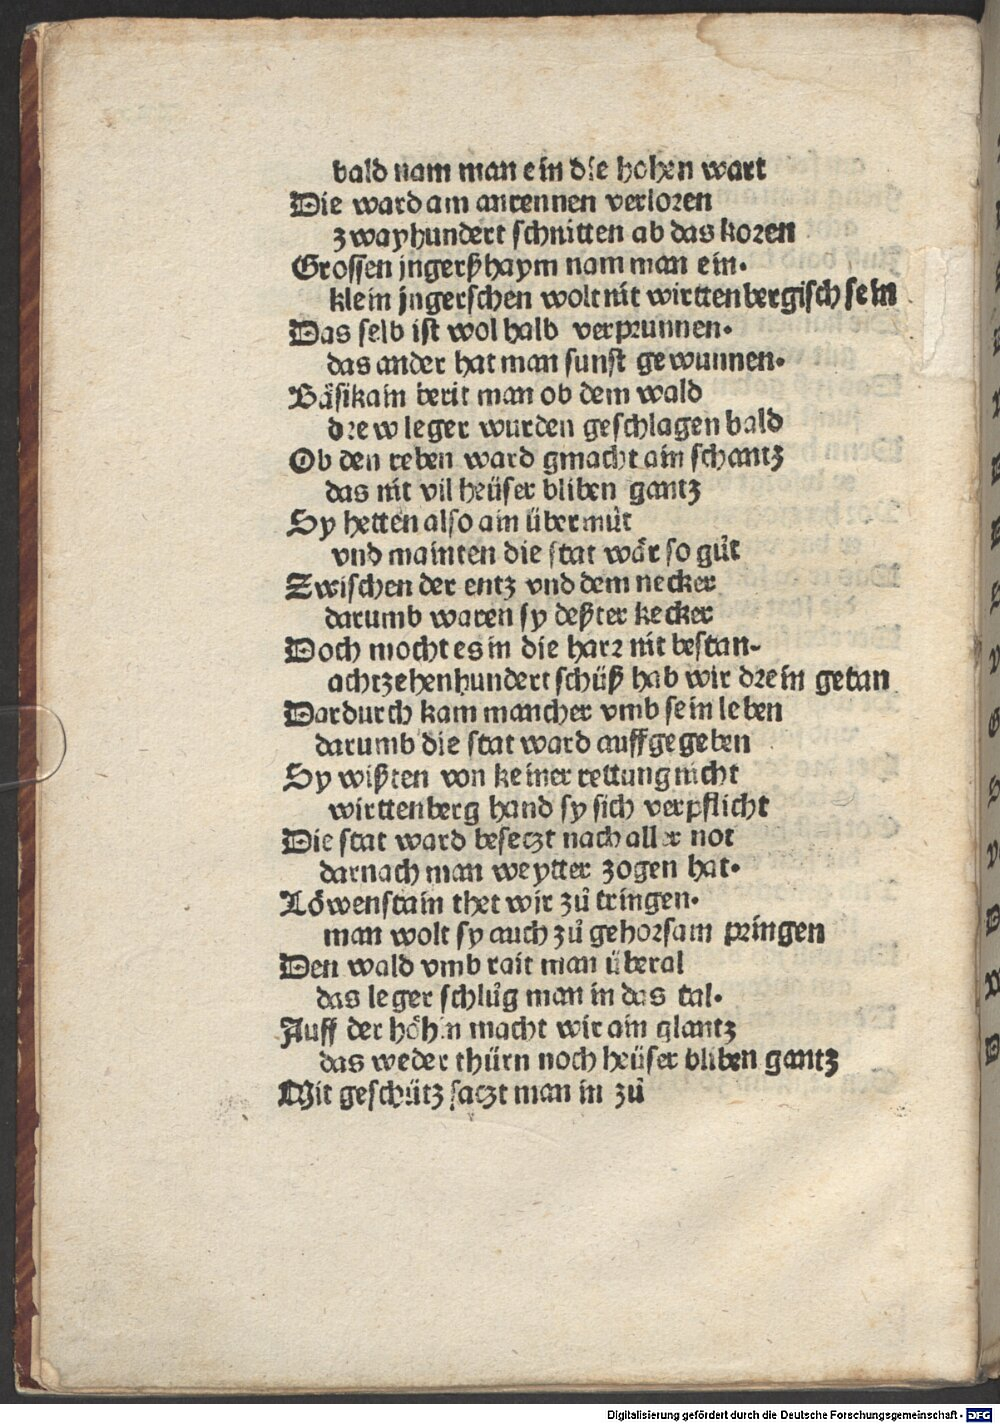 bald nam man ein die hohen wart
Die ward am anrennen verloren
zwayhundert schnitten ab das koren
Grossen jngerßhaym nam man ein.
klein jngerschen wolt nit wirttenbergisch sein
Das selb ist wol halb verprunnen.
das ander hat man sunst gewunnen.
Bäsikain berit man ob dem wald
drew leger wurden geschlagen bald
Ob den reben ward gmacht ain schantz
das nit vil heüser bliben gantz
Sy hetten also ain übermůt
vnd mainten die stat wär so gůt
Zwischen der entz vnd dem necker
darumb waren sy deßter kecker
Doch mocht es in die harr nit bestan.
achtzehenhundert schüß hab wir drein getan
Dardurch kam mancher vmb sein leben
darumb die stat ward auffgegeben
Sy wißten von keiner rettung nicht
wirttenberg hand sy sich verpflicht
Die stat ward besetzt nach aller not
darnach man weytter zogen hat.
Löwenstain thet wir zů tringen.
man wolt sy auch zů gehorsam pringen
Den wald vmb rait man überal
das leger schlůg man in das tal.
Auff der höhin macht wir ain glantz
das weder thürn noch heüser bliben gantz
Mit geschütz satzt man in zů
Digitalisierung gefördert durch die Deutsche Forschungsgemeinschaft - DFG